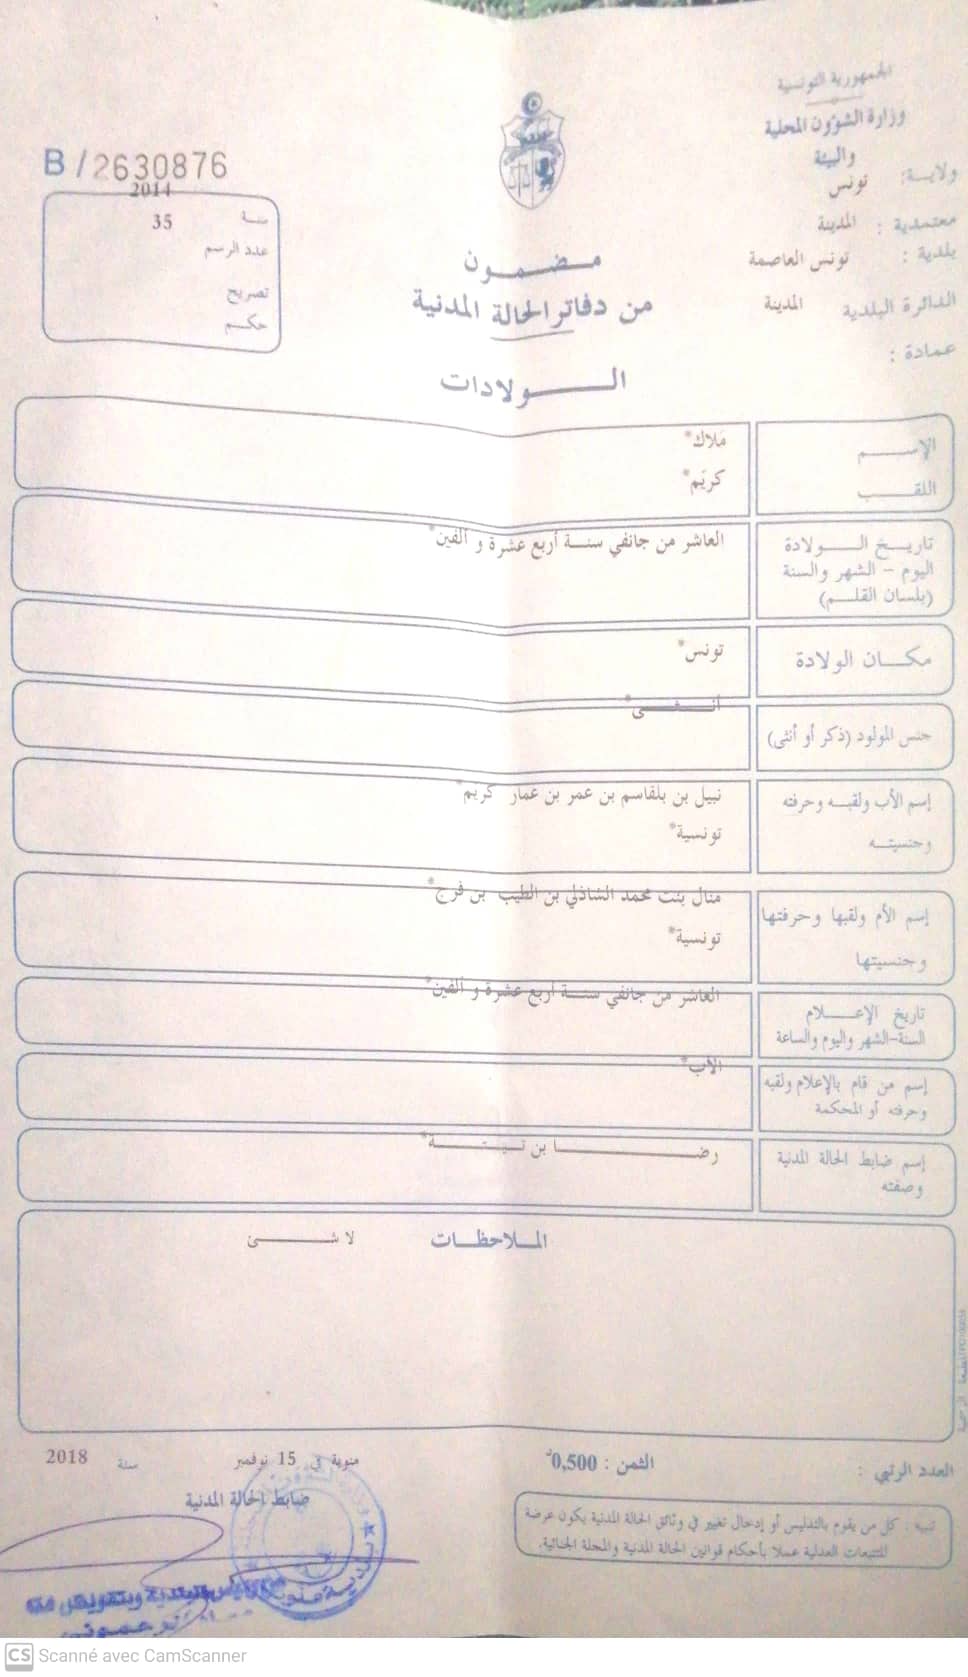 الجمهورية التونسية
وزارة الشؤون المحلية
والبيئة
ولاية: تونس
معتمدية : المدينة
بلدية : تونس العاصمة
الدائرة البلدية المدينة
عمادة :
B/2630876
2014
سنة 35
عدد الرسم
تصريح
حكم
مضمون
من دفاتر الحالة المدنية
الولادات
الإسم ملاك*
اللقب كريم*
تاريخ الولادة العاشر من جانفي سنة أربع عشرة و ألفين*
اليوم – الشهر والسنة
(بلسان القلم)
مكان الولادة تونس*
جنس المولود (ذكر أو أنثى) أنثى*
إسم الأب ولقبه وحرفته نبيل بن بلقاسم بن عمر بن عمار كريم*
وجنسيته تونسية*
إسم الأم ولقبها وحرفتها منال بنت محمد الشاذلي بن الطيب بن فرج*
وجنسيتها تونسية*
تاريخ الإعلام العاشر من جانفي سنة أربع عشرة و ألفين*
السنة-الشهر واليوم والساعة
إسم من قام بالإعلام ولقبه الأب*
وحرفته أو المحكمة
إسم ضابط الحالة المدنية رضا بن
وصفته
الملاحظات لا شئ
العدد الرتبي :
الثمن : 0,500د
منوبة في 15 نوفمبر سنة 2018
ضابط الحالة المدنية
تنبيه : كل من يقوم بالتدليس أو إدخال تغيير في وثائق الحالة المدنية يكون عرضة
للتتبعات العدلية عملا بأحكام قوانين الحالة المدنية والمجلة الجنائية.
بلدية منوبة
CS Scanné avec CamScanner